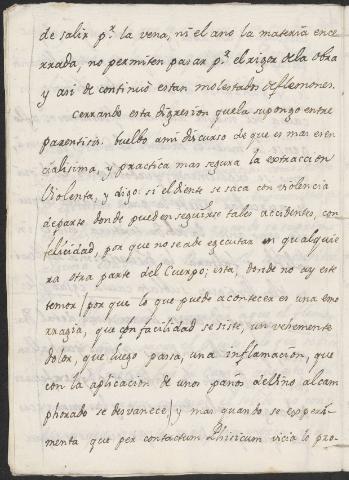 de salir p.r la vena, ni el ano la materia ence
rrada, no permiten pasar p.r el rigor de la obra
y asi de continuo estan molestados de flemones.
Cerrando esta digresion que la supongo entre
parentisis, buelbo a mi discurso de que es mas esen
cialisima, y practica mas segura la extraccion
violenta, y digo: si el diente se saca con violencia
de parte donde pueden seguirse tales accidentes, con
felicidad, por que no se abe egecutar en qualquie
ra otra parte del Cuerpo; esta, donde no ay este
temor (por que lo que puede acontecer es una emo
rragia, que con facilidad se siste, un vehemente
dolor, que luego pasa, una inflamacion, que
con la aplicacion de unos paños de lino alcam
phorado se desvanece) y mas quando se experi-
menta que per contactum Phisicum vicia lo pro-